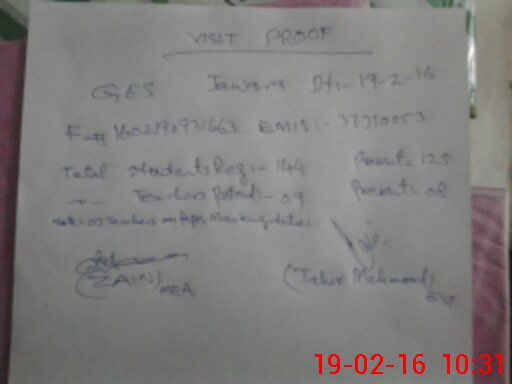 VISIT PROOF
GES Jawara Dt:- 19-2-16
F-# 160219093<br>1663 EMIS:- 37310053
Total Students Reg:- 144 Present:- 125
-"- Teachers Posted:- 09 Present:- 08
Note:- 03 Teachers on Paper Marking duties
(ZAIN) MEA
(Tahir Mehmood) EST
19-02-16 10:31